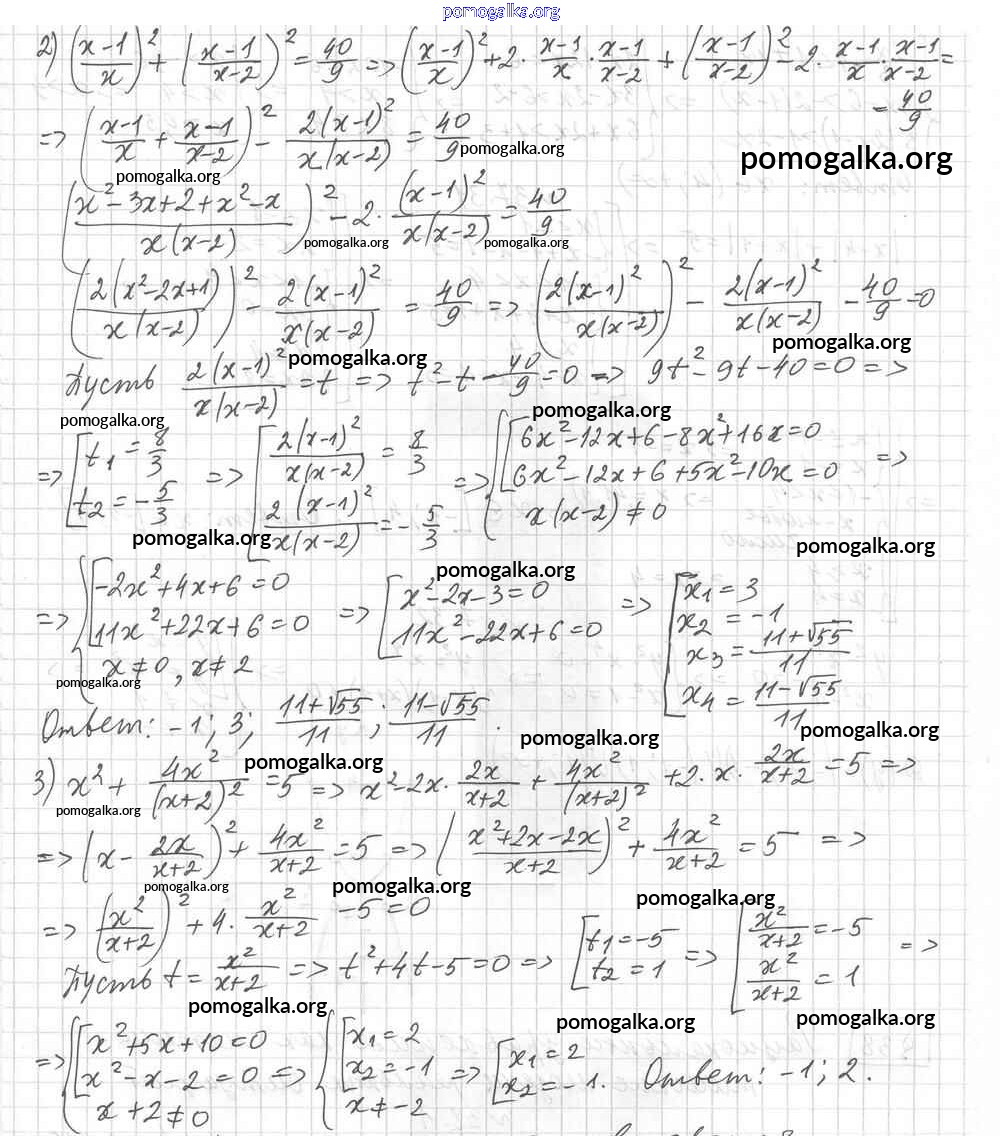 pomogalka.org
2) ((x-1)/x)² + ((x-1)/(x-2))² = 40/9 => ((x-1)/x)² + 2· (x-1)/x · (x-1)/(x-2) + ((x-1)/(x-2))² - 2· (x-1)/x · (x-1)/(x-2) =
= 40/9
=> ((x-1)/x + (x-1)/(x-2))² - 2(x-1)²/(x(x-2)) = 40/9 pomogalka.org
pomogalka.org
pomogalka.org
((x²-3x+2+x²-x)/(x(x-2)))² - 2· (x-1)²/(x(x-2)) = 40/9
pomogalka.org pomogalka.org
(2(x²-2x+1)/(x(x-2)))² - 2(x-1)²/(x(x-2)) = 40/9 => (2(x-1)²/(x(x-2)))² - 2(x-1)²/(x(x-2)) - 40/9 = 0
pomogalka.org pomogalka.org
Пусть 2(x-1)²/(x(x-2)) = t => t² - t - 40/9 = 0 => 9t² - 9t - 40 = 0 =>
pomogalka.org pomogalka.org
=> [t₁ = 8/3 t₂ = -5/3 => [2(x-1)²/(x(x-2)) = 8/3 2(x-1)²/(x(x-2)) = -5/3 => {[6x²-12x+6-8x²+16x=0 6x²-12x+6+5x²-10x=0 x(x-2)≠0 =>
pomogalka.org pomogalka.org
pomogalka.org
=> {[-2x²+4x+6=0 11x²+22x+6=0 x≠0, x≠2 => [x²-2x-3=0 11x²-22x+6=0 => [x₁=3 x₂=-1 x₃=(11+√55)/11 x₄=(11-√55)/11
pomogalka.org
Ответ: -1; 3; (11+√55)/11; (11-√55)/11.
pomogalka.org pomogalka.org
3) x² + 4x²/(x+2)² = 5 => x² - 2x· 2x/(x+2) + 4x²/(x+2)² + 2·x· 2x/(x+2) = 5 =>
pomogalka.org
pomogalka.org
=> (x - 2x/(x+2))² + 4x²/(x+2) = 5 => ((x²+2x-2x)/(x+2))² + 4x²/(x+2) = 5 =>
pomogalka.org pomogalka.org pomogalka.org
=> (x²/(x+2))² + 4· x²/(x+2) - 5 = 0
Пусть t = x²/(x+2) => t²+4t-5=0 => [t₁=-5 t₂=1 => [x²/(x+2) = -5 x²/(x+2) = 1 =>
pomogalka.org pomogalka.org pomogalka.org
=> {[x²+5x+10=0 x²-x-2=0 x+2≠0 => {[x₁=2 x₂=-1 x≠-2 => [x₁=2 x₂=-1. Ответ: -1; 2.